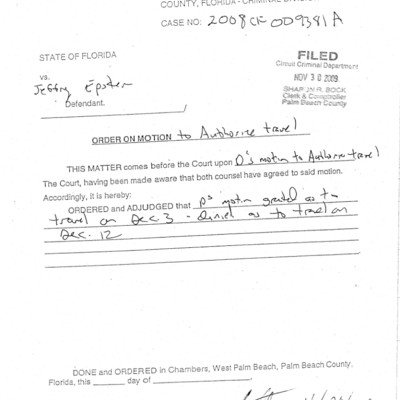 COUNTY, FLORIDA - CRIMINAL
CASE NO: 2008CF009381A
STATE OF FLORIDA
vs.
Jeffry Epstein
Defendant.
FILED
Circuit Criminal Department
NOV 30 2009
SHARON R. BOCK
Clerk & Comptroller
Palm Beach County
ORDER ON MOTION to Authorize travel
THIS MATTER comes before the Court upon D's motion to Authorize travel
The Court, having been made aware that both counsel have agreed to said motion.
Accordingly, it is hereby:
ORDERED and ADJUDGED that D's motion granted as to
travel on Dec 3 - denied as to travel on
Dec. 12
DONE and ORDERED in Chambers, West Palm Beach, Palm Beach County.
Florida, this ______ day of